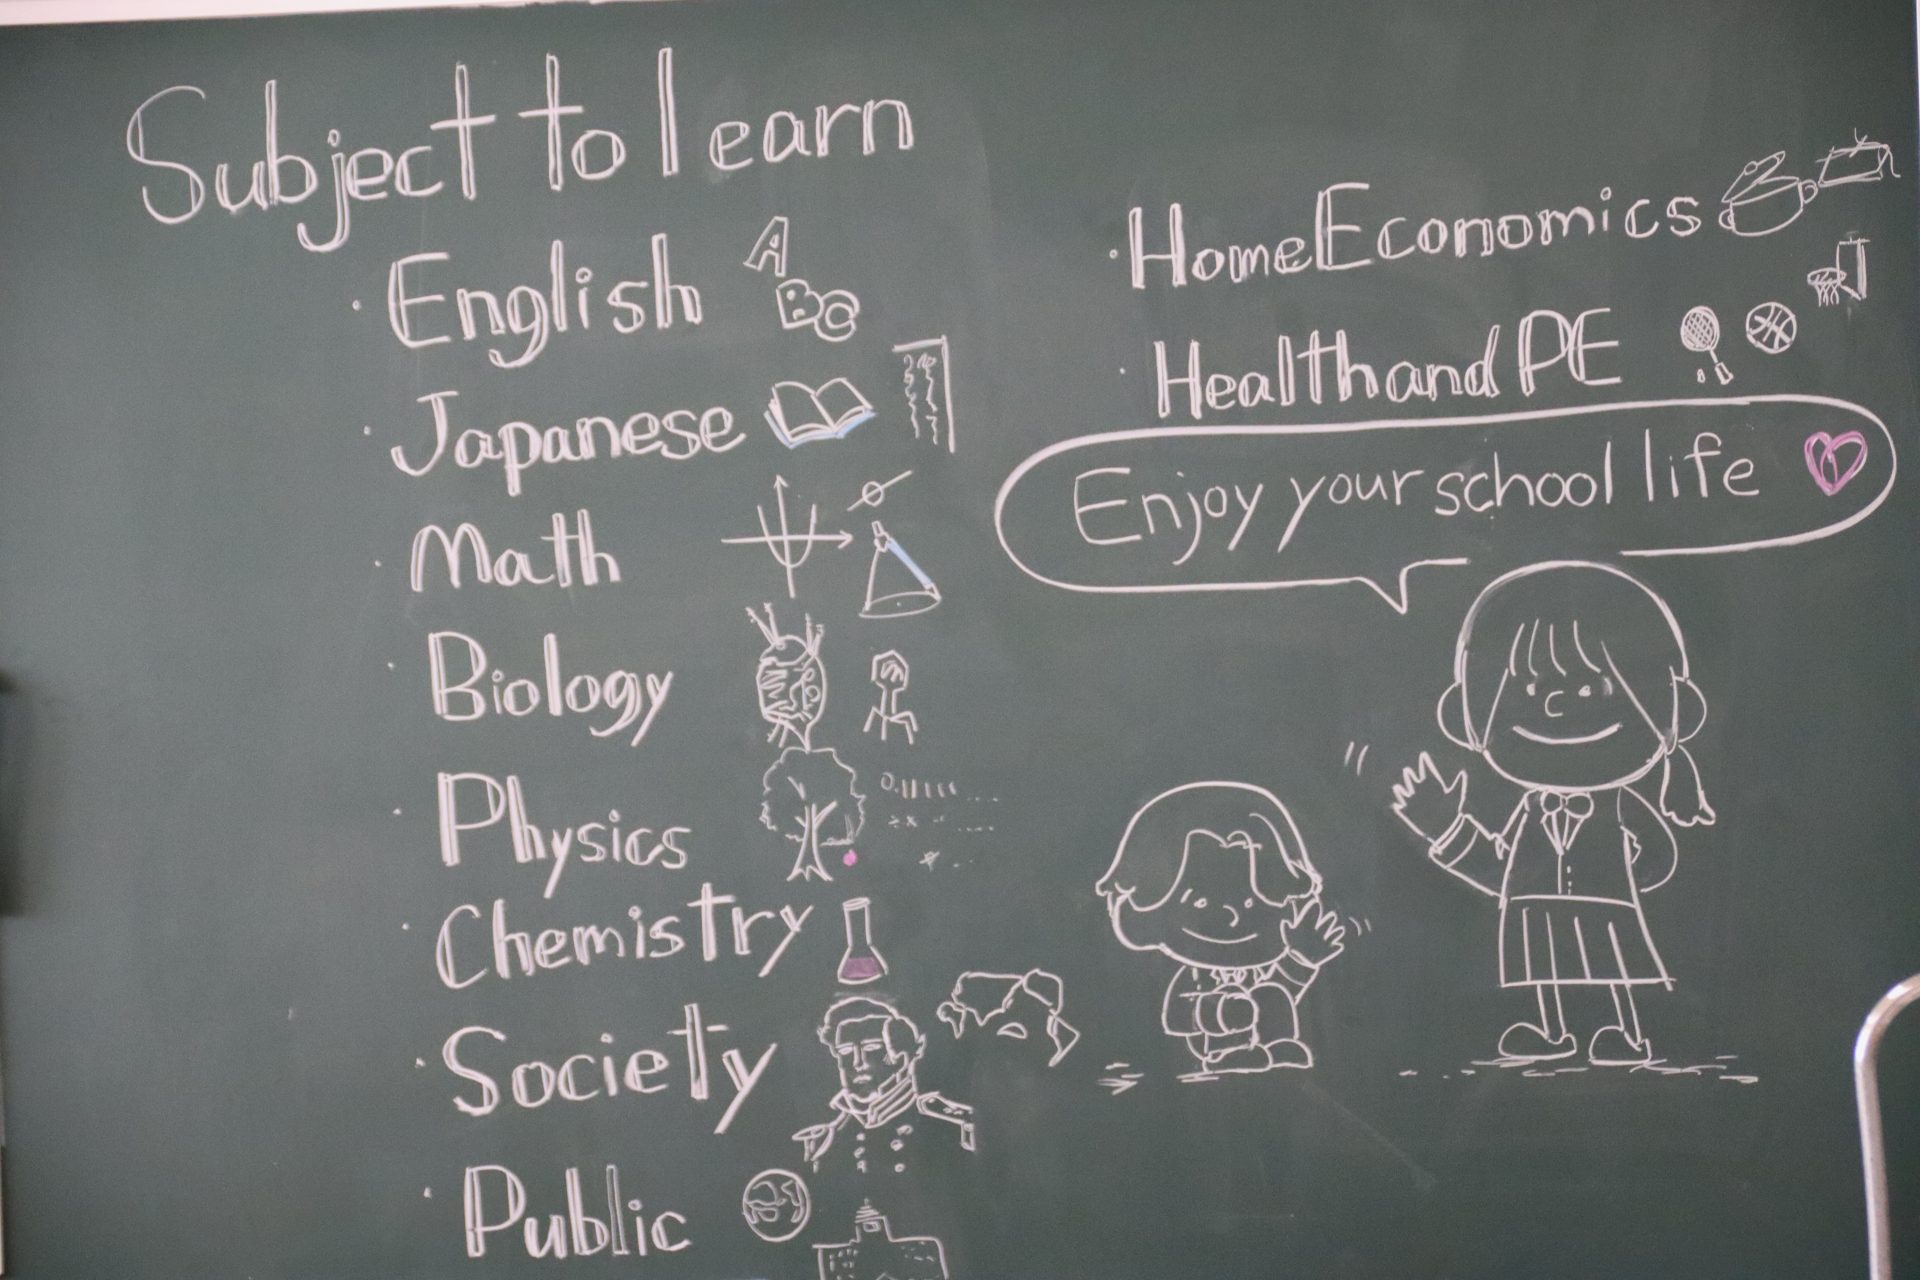 Subject to learn
・English A
BC
・Japanese
・Math
・Biology
・Physics
・Chemistry
・Society
・Public
・HomeEconomics
・HealthandPE
Enjoy your school life